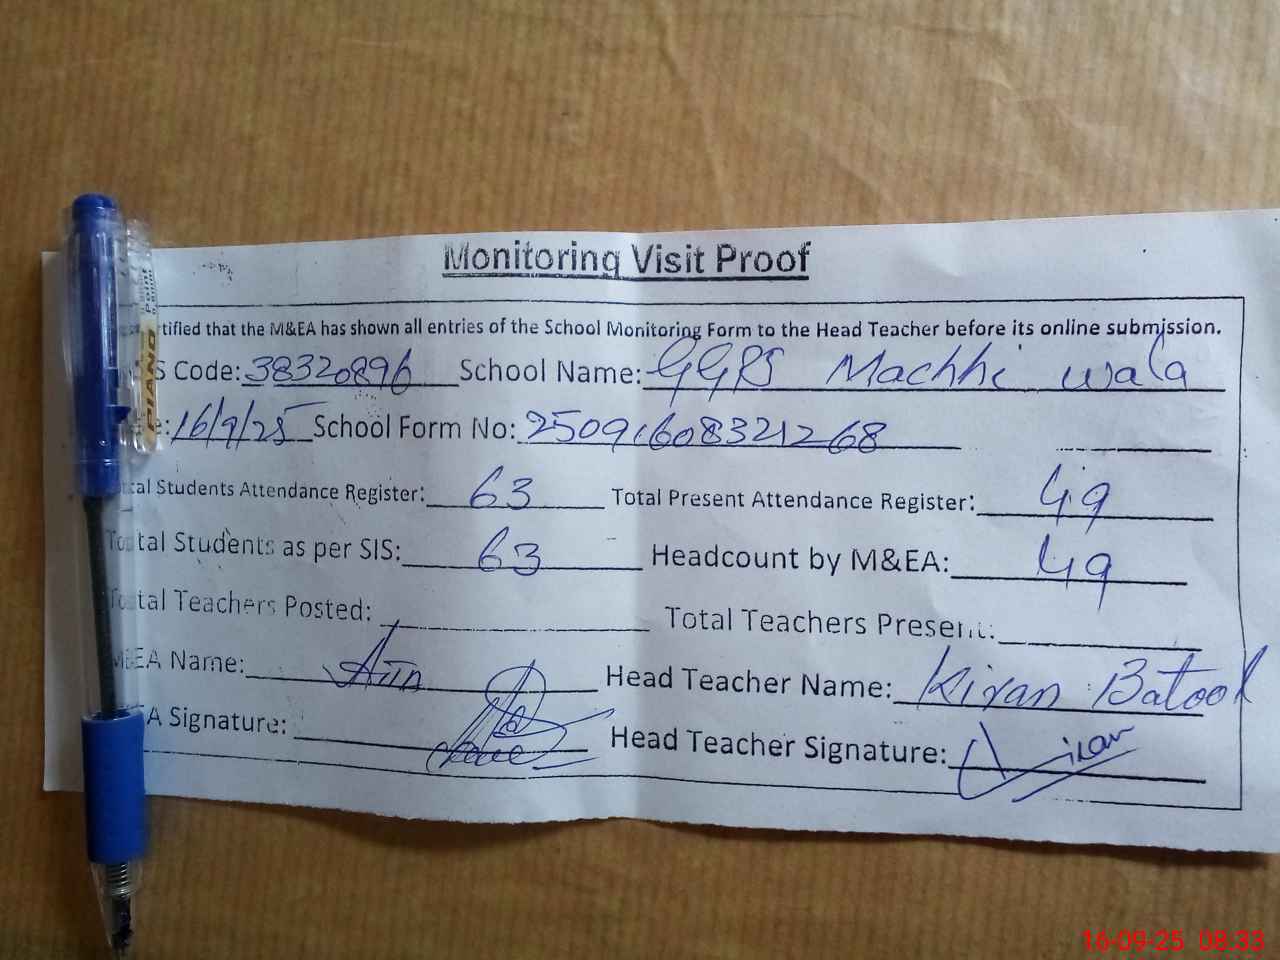 Monitoring Visit Proof
rtified that the M&EA has shown all entries of the School Monitoring Form to the Head Teacher before its online submission.
S Code: 38320896 School Name: GGPS Machhi wala
e: 16/9/25 School Form No: 25091608321268
tal Students Attendance Register: 63 Total Present Attendance Register: 49
Total Students as per SIS: 63 Headcount by M&EA: 49
Total Teachers Posted: Total Teachers Present:
M&EA Name: Head Teacher Name: Kiran Batool
EA Signature: Head Teacher Signature: Kiran
PIANO
Point
16-09-25 08:33